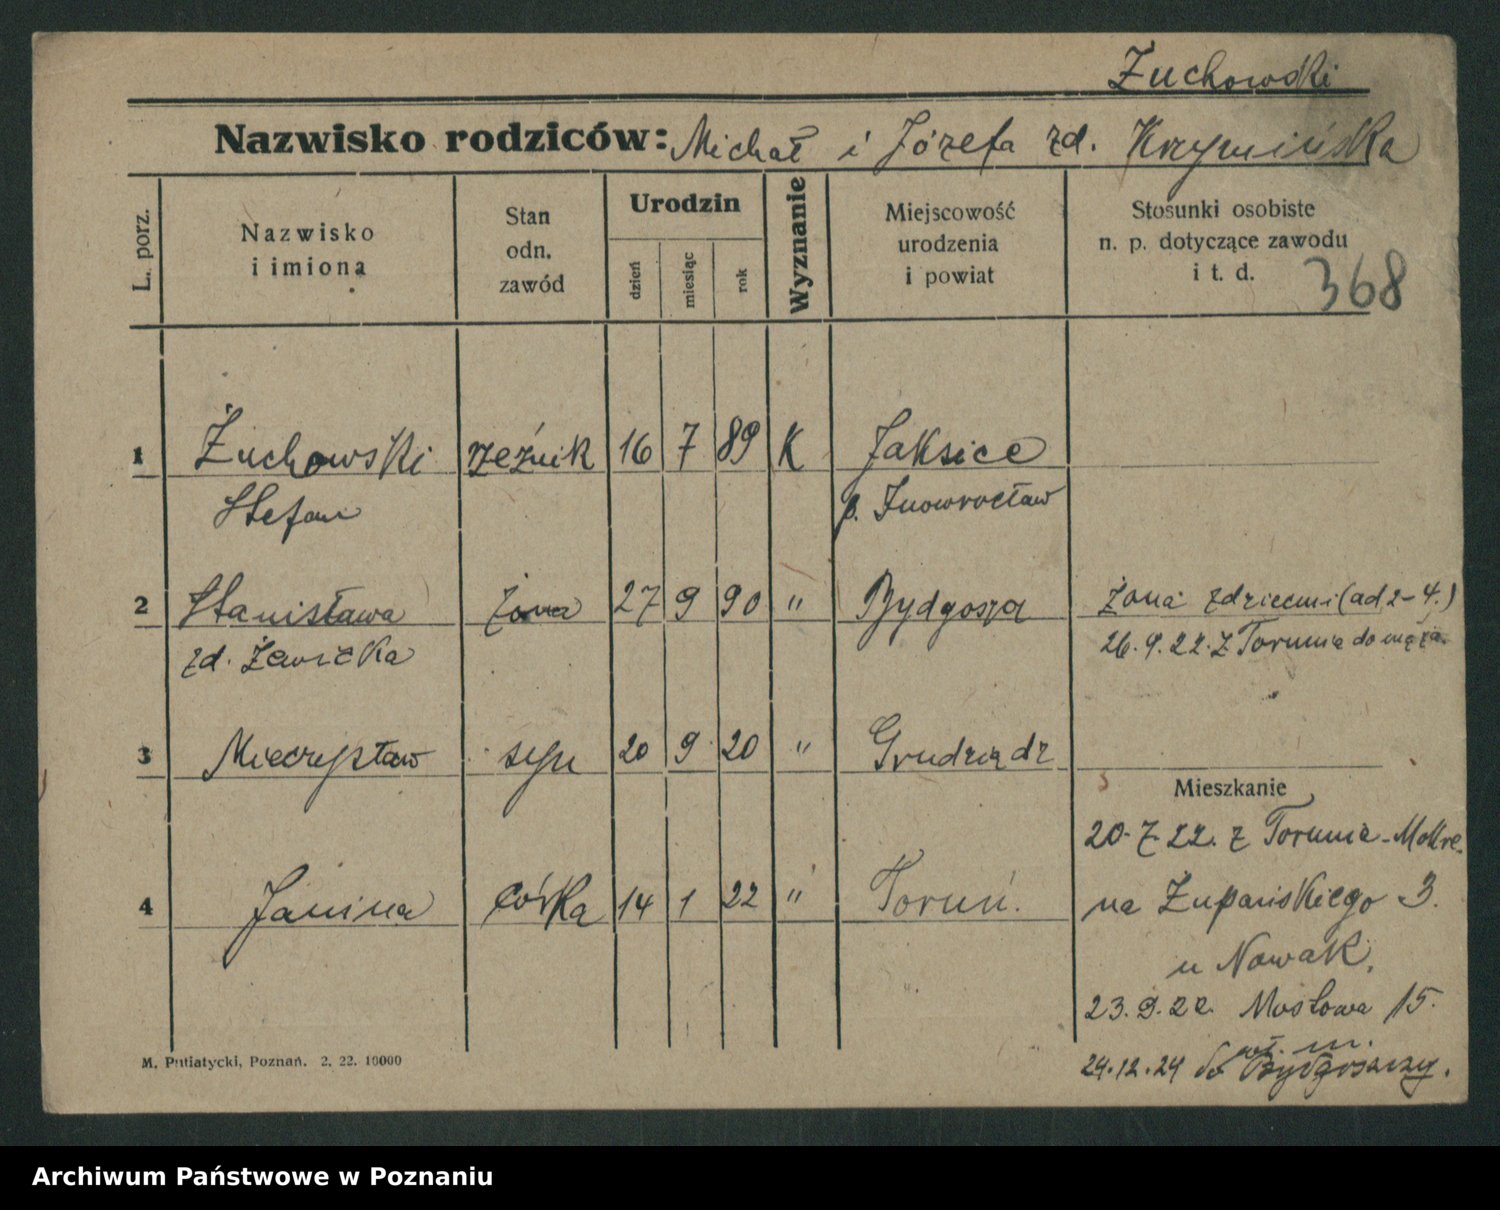 Żuchowski
Nazwisko rodziców: Michał i Józefa zd. Krzymińska
L. porz.
Nazwisko
i imiona
Stan
odn.
zawód
Urodzin
dzień
miesiąc
rok
Wyznanie
Miejscowość
urodzenia
i powiat
Stosunki osobiste
n. p. dotyczące zawodu
i t. d.
368
1 Żuchowski rzeźnik 16 7 89 K Jaksice
Stefan p. Inowrocław
2 Stanisława żona 27 9 90 " Bydgoszcz żona z dziećmi (ad 2-4.)
zd. 26.9.22. z Torunia do męża.
3 Mieczysław syn 20 9 20 " Grudziądz
Mieszkanie
20.7.22. z Torunia-Mokre
4 Janina córka 14 1 22 " Toruń. na Żupańskiego 3.
u Nowak.
23.9.22. Mostowa 15.
wł. m.
24.12.24 do Bydgoszczy.
M. Putiatycki, Poznań. 2. 22. 10000
Archiwum Państwowe w Poznaniu